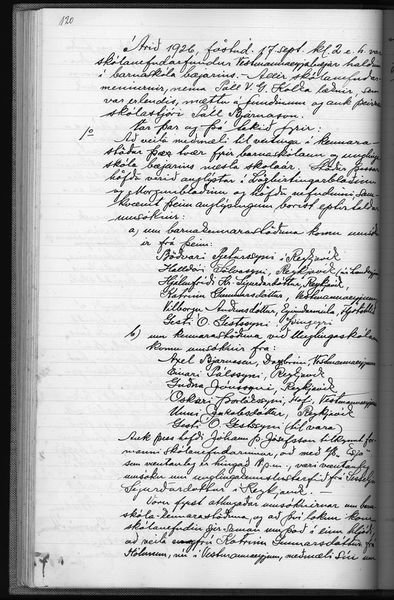 120
Árið 1926, föstud. 17. sept. kl. 2 e. h. var
skólanefndarfundur Vestmannaeyjabæjar haldinn
í barnaskóla bæjarins. - Allir skólanefndar-
mennirnir, nema Páll V. G. Kolka læknir, sem
var erlendis, mættu á fundinum og auk þeirra
skólastjóri Páll Bjarnason.
Var þar og þá tekið fyrir:
1° Að veita meðmæli til veitinga í kennara-
stöður þær tvær fyrir barnaskólann og unglinga-
skóla bæjarins næsta skólaár. Stöður þessar
höfðu verið auglýstar í Lögbirtingarblaðinu
og Morgunblaðinu og höfðu nefndinni, sam-
kvæmt þeim auglýsingum borist eftirtaldar
umsóknir:
a) um barnakennarastöðuna komu umsóknir
frá þeim:
Böðvari Péturssyni í Reykjavík
Halldóri Sölvasyni, Reykjavík
Hjálmfríði Kr. Sigurðardóttur, Reykjavík,
Katrínu Gunnarsdóttur, Vestmannaeyjum
Vilborgu Auðunsdóttur,
Gesti Ó. Gestssyni, Þingeyri
b) um kennarastöðuna við Unglingaskólann
komu umsóknir frá:
Axel Bjarnasen, Dagsbrún, Vestmannaeyjum
Einari Pálssyni, Reykjavík
Guðna Jónssyni, Reykjavík
Óskari Þorlákssyni, Hof, Vestmannaeyjum
Unni Jakobsdóttur, Reykjavík
Gesti Ó. Gestssyni (til vara)
Auk þess hafði Jóhann Þ. Jósefsson tilkynnt for-
manni skólanefndarinnar, að með
sem væntanleg er hingað væri væntanleg
umsókn um unglingakennarastarfið frá
Sigurðardóttur í Reykjavík. -
Voru fyrst athugaðar umsóknirnar um barna-
skóla-kennarastöðuna, og að því loknu kom
skólanefndin sér saman um það í einu hljóði
að veita ungfrú Katrínu Gunnarsdóttur frá
Hólmum, nú í Vestmannaeyjum, meðmæli sín